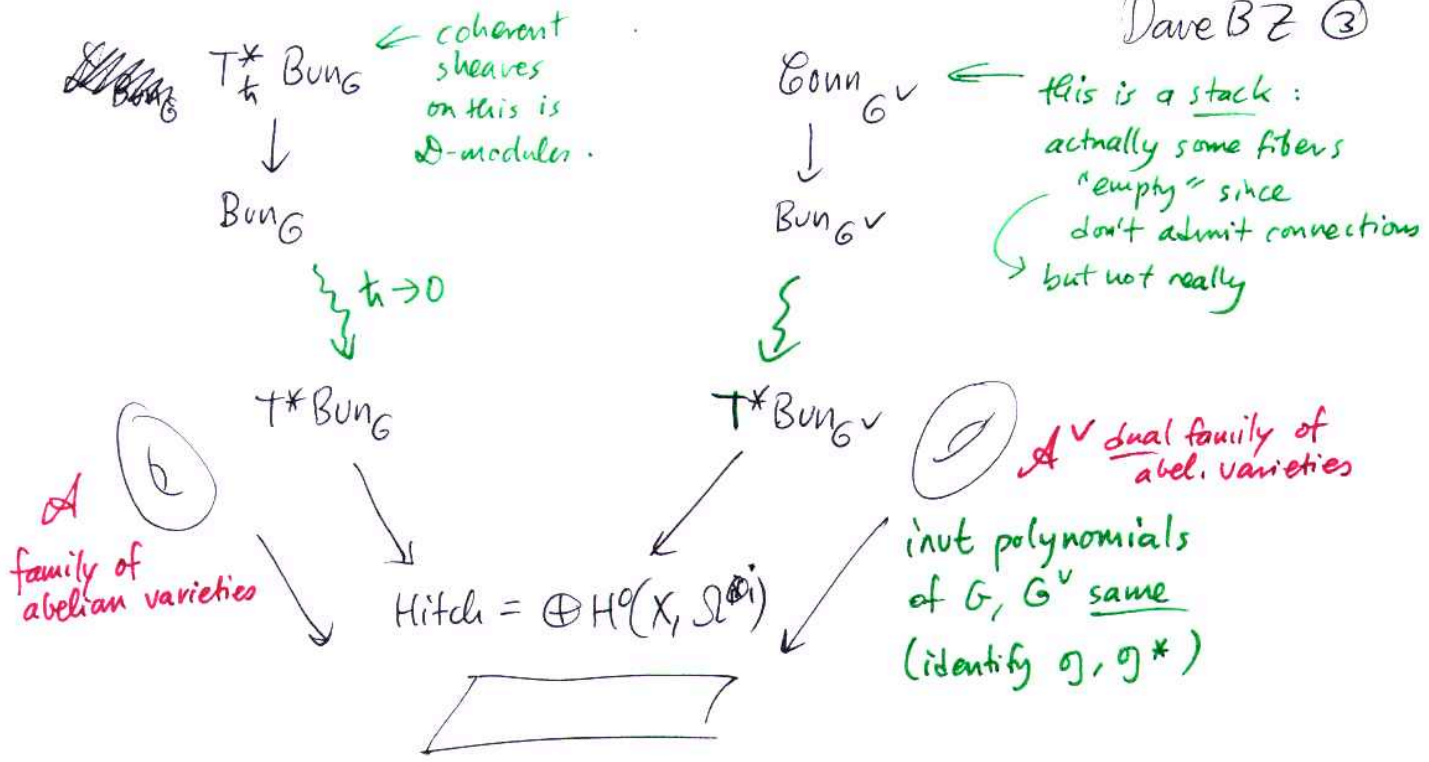 Dave BZ ③
T*ℏ BunG
← coherent
sheaves
on this is
D-modules.
BunG
ℏ → 0
T*BunG
A
family of
abelian varieties
ConnG∨
← this is a stack :
actually some fibers
"empty" since
don't admit connections
but not really
BunG∨
T*BunG∨
A∨ dual family of
abel. varieties
Hitch = ⊕ H⁰(X, Ω⊗i)
invt polynomials
of G, G∨ same
(identify g, g*)